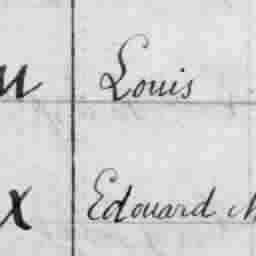 u Louis
x Edouard